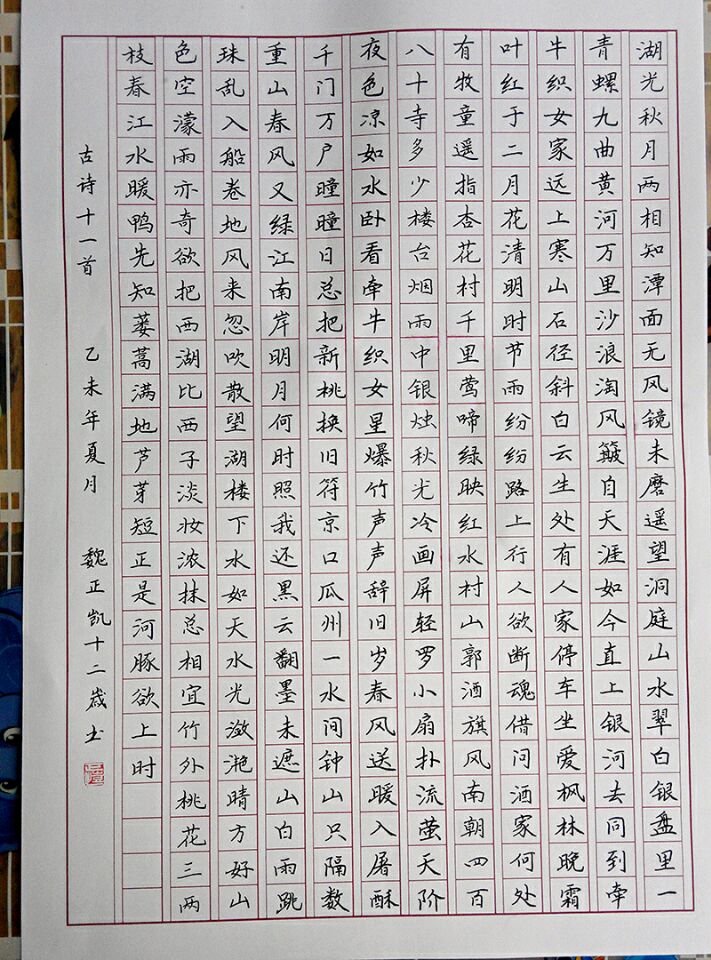 湖光秋月两相知潭面无风镜未磨遥望洞庭山水翠白银盘里一
青螺九曲黄河万里沙浪淘风簸自天涯如今直上银河去同到牵
牛织女家远上寒山石径斜白云生处有人家停车坐爱枫林晚霜
叶红于二月花清明时节雨纷纷路上行人欲断魂借问酒家何处
有牧童遥指杏花村千里莺啼绿映红水村山郭酒旗风南朝四百
八十寺多少楼台烟雨中银烛秋光冷画屏轻罗小扇扑流萤天阶
夜色凉如水卧看牵牛织女星爆竹声声辞旧岁春风送暖入屠酥
千门万户瞳瞳日总把新桃换旧符京口瓜州一水间钟山只隔数
重山春风又绿江南岸明月何时照我还黑云翻墨未遮山白雨跳
珠乱入船卷地风来忽吹散望湖楼下水如天水光潋滟晴方好山
色空濛雨亦奇欲把西湖比西子淡妆浓抹总相宜竹外桃花三两
枝春江水暖鸭先知蒌蒿满地芦芽短正是河豚欲上时
古诗十一首 乙未年夏月 魏正凯十二岁书